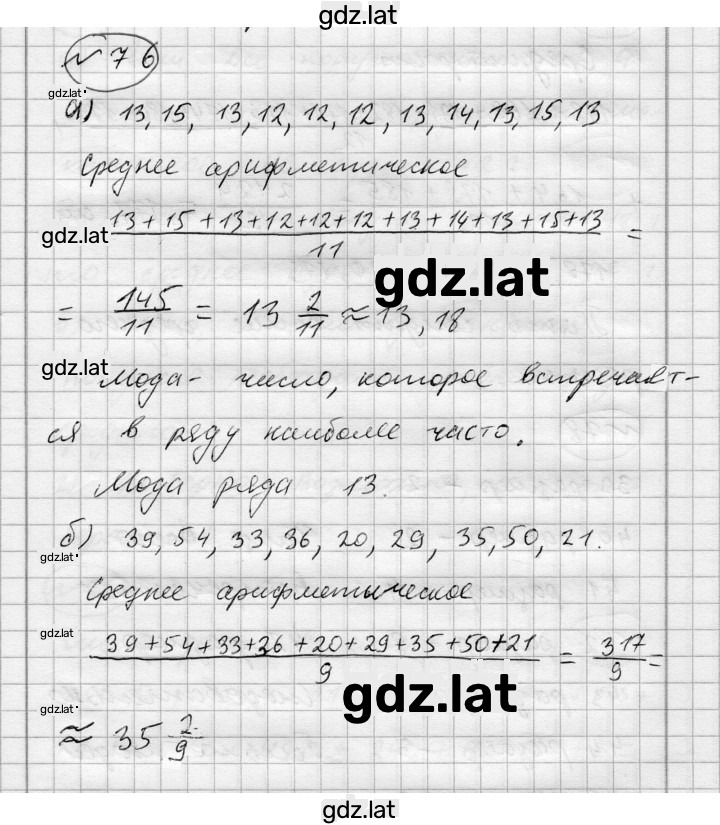 gdz.lat
№ 76
gdz.lat
а) 13, 15, 13, 12, 12, 12, 13, 14, 13, 15, 13
Среднее арифметическое
gdz.lat
13 + 15 + 13 + 12 + 12 + 12 + 13 + 14 + 13 + 15 + 13 / 11 =
gdz.lat
= 145/11 = 13 2/11 ≈ 13,18
gdz.lat
Мода - число, которое встречает-
ся в ряду наиболее часто.
Мода ряда 13.
б) 39, 54, 33, 36, 20, 29, 35, 50, 21.
gdz.lat
Среднее арифметическое
gdz.lat
39 + 54 + 33 + 36 + 20 + 29 + 35 + 50 + 21 / 9 = 317/9 =
gdz.lat
gdz.lat
≈ 35 2/9
gdz.lat